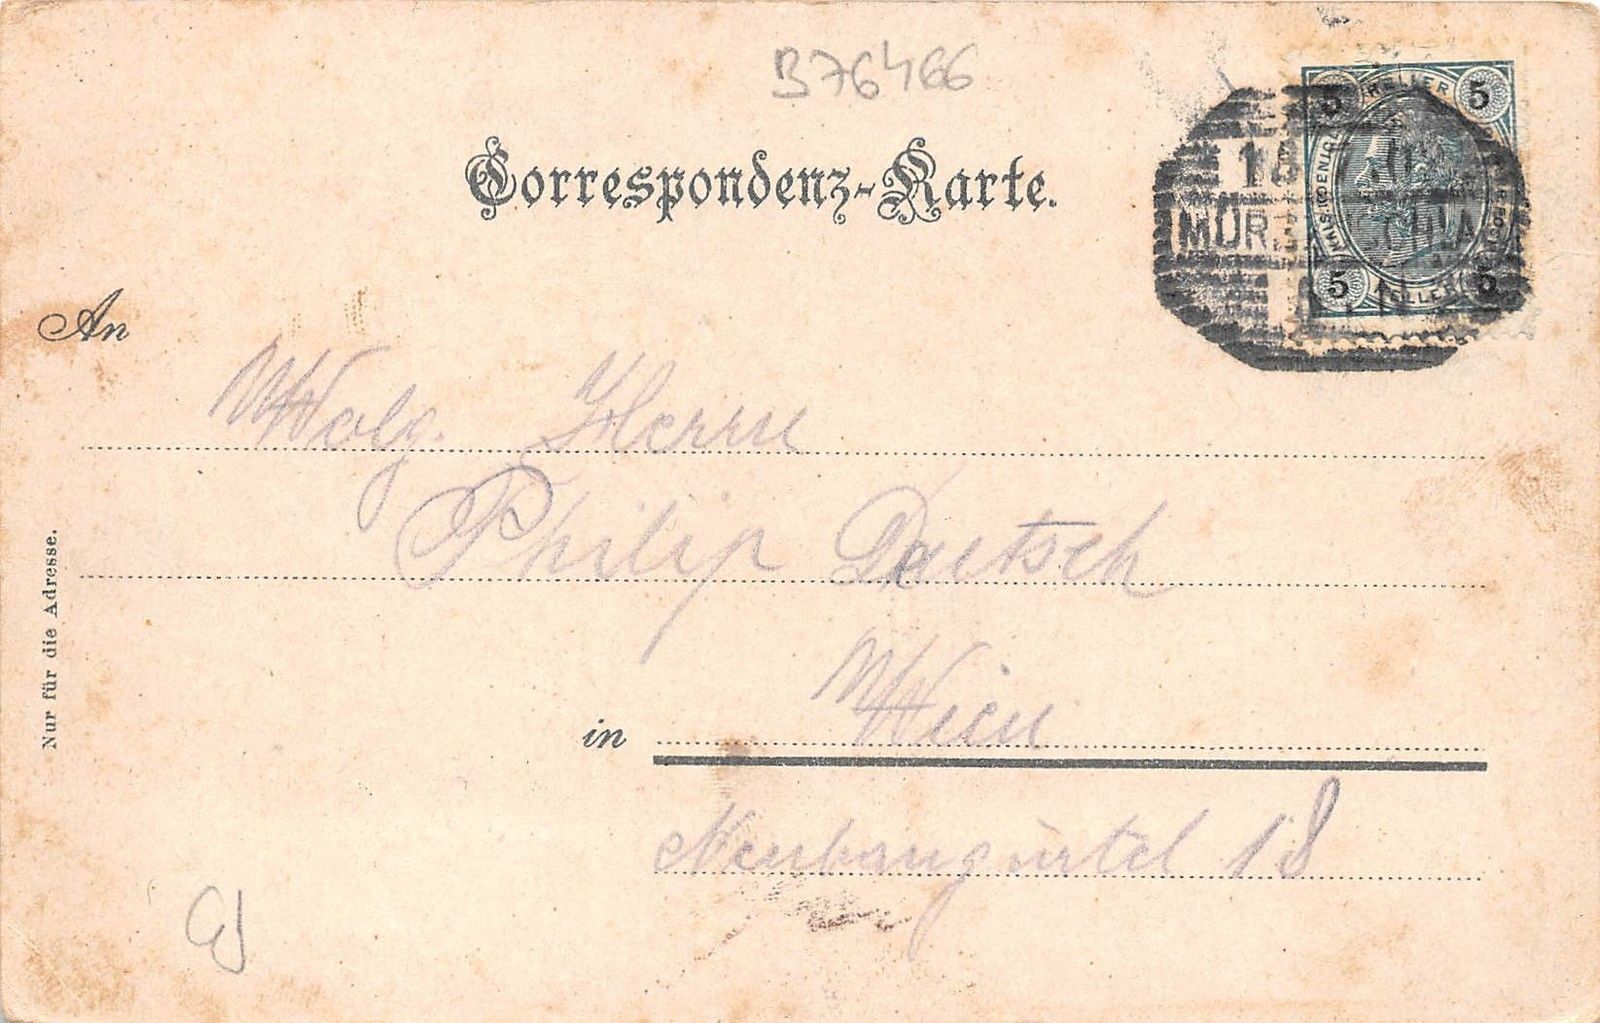 B76466
Correspondenz-Karte.
5 HELLER 5
5 HELLER 5
An
Wolg. Herrn
Philip Deutsch
in Wien
Neubaugürtel 18
Nur für die Adresse.